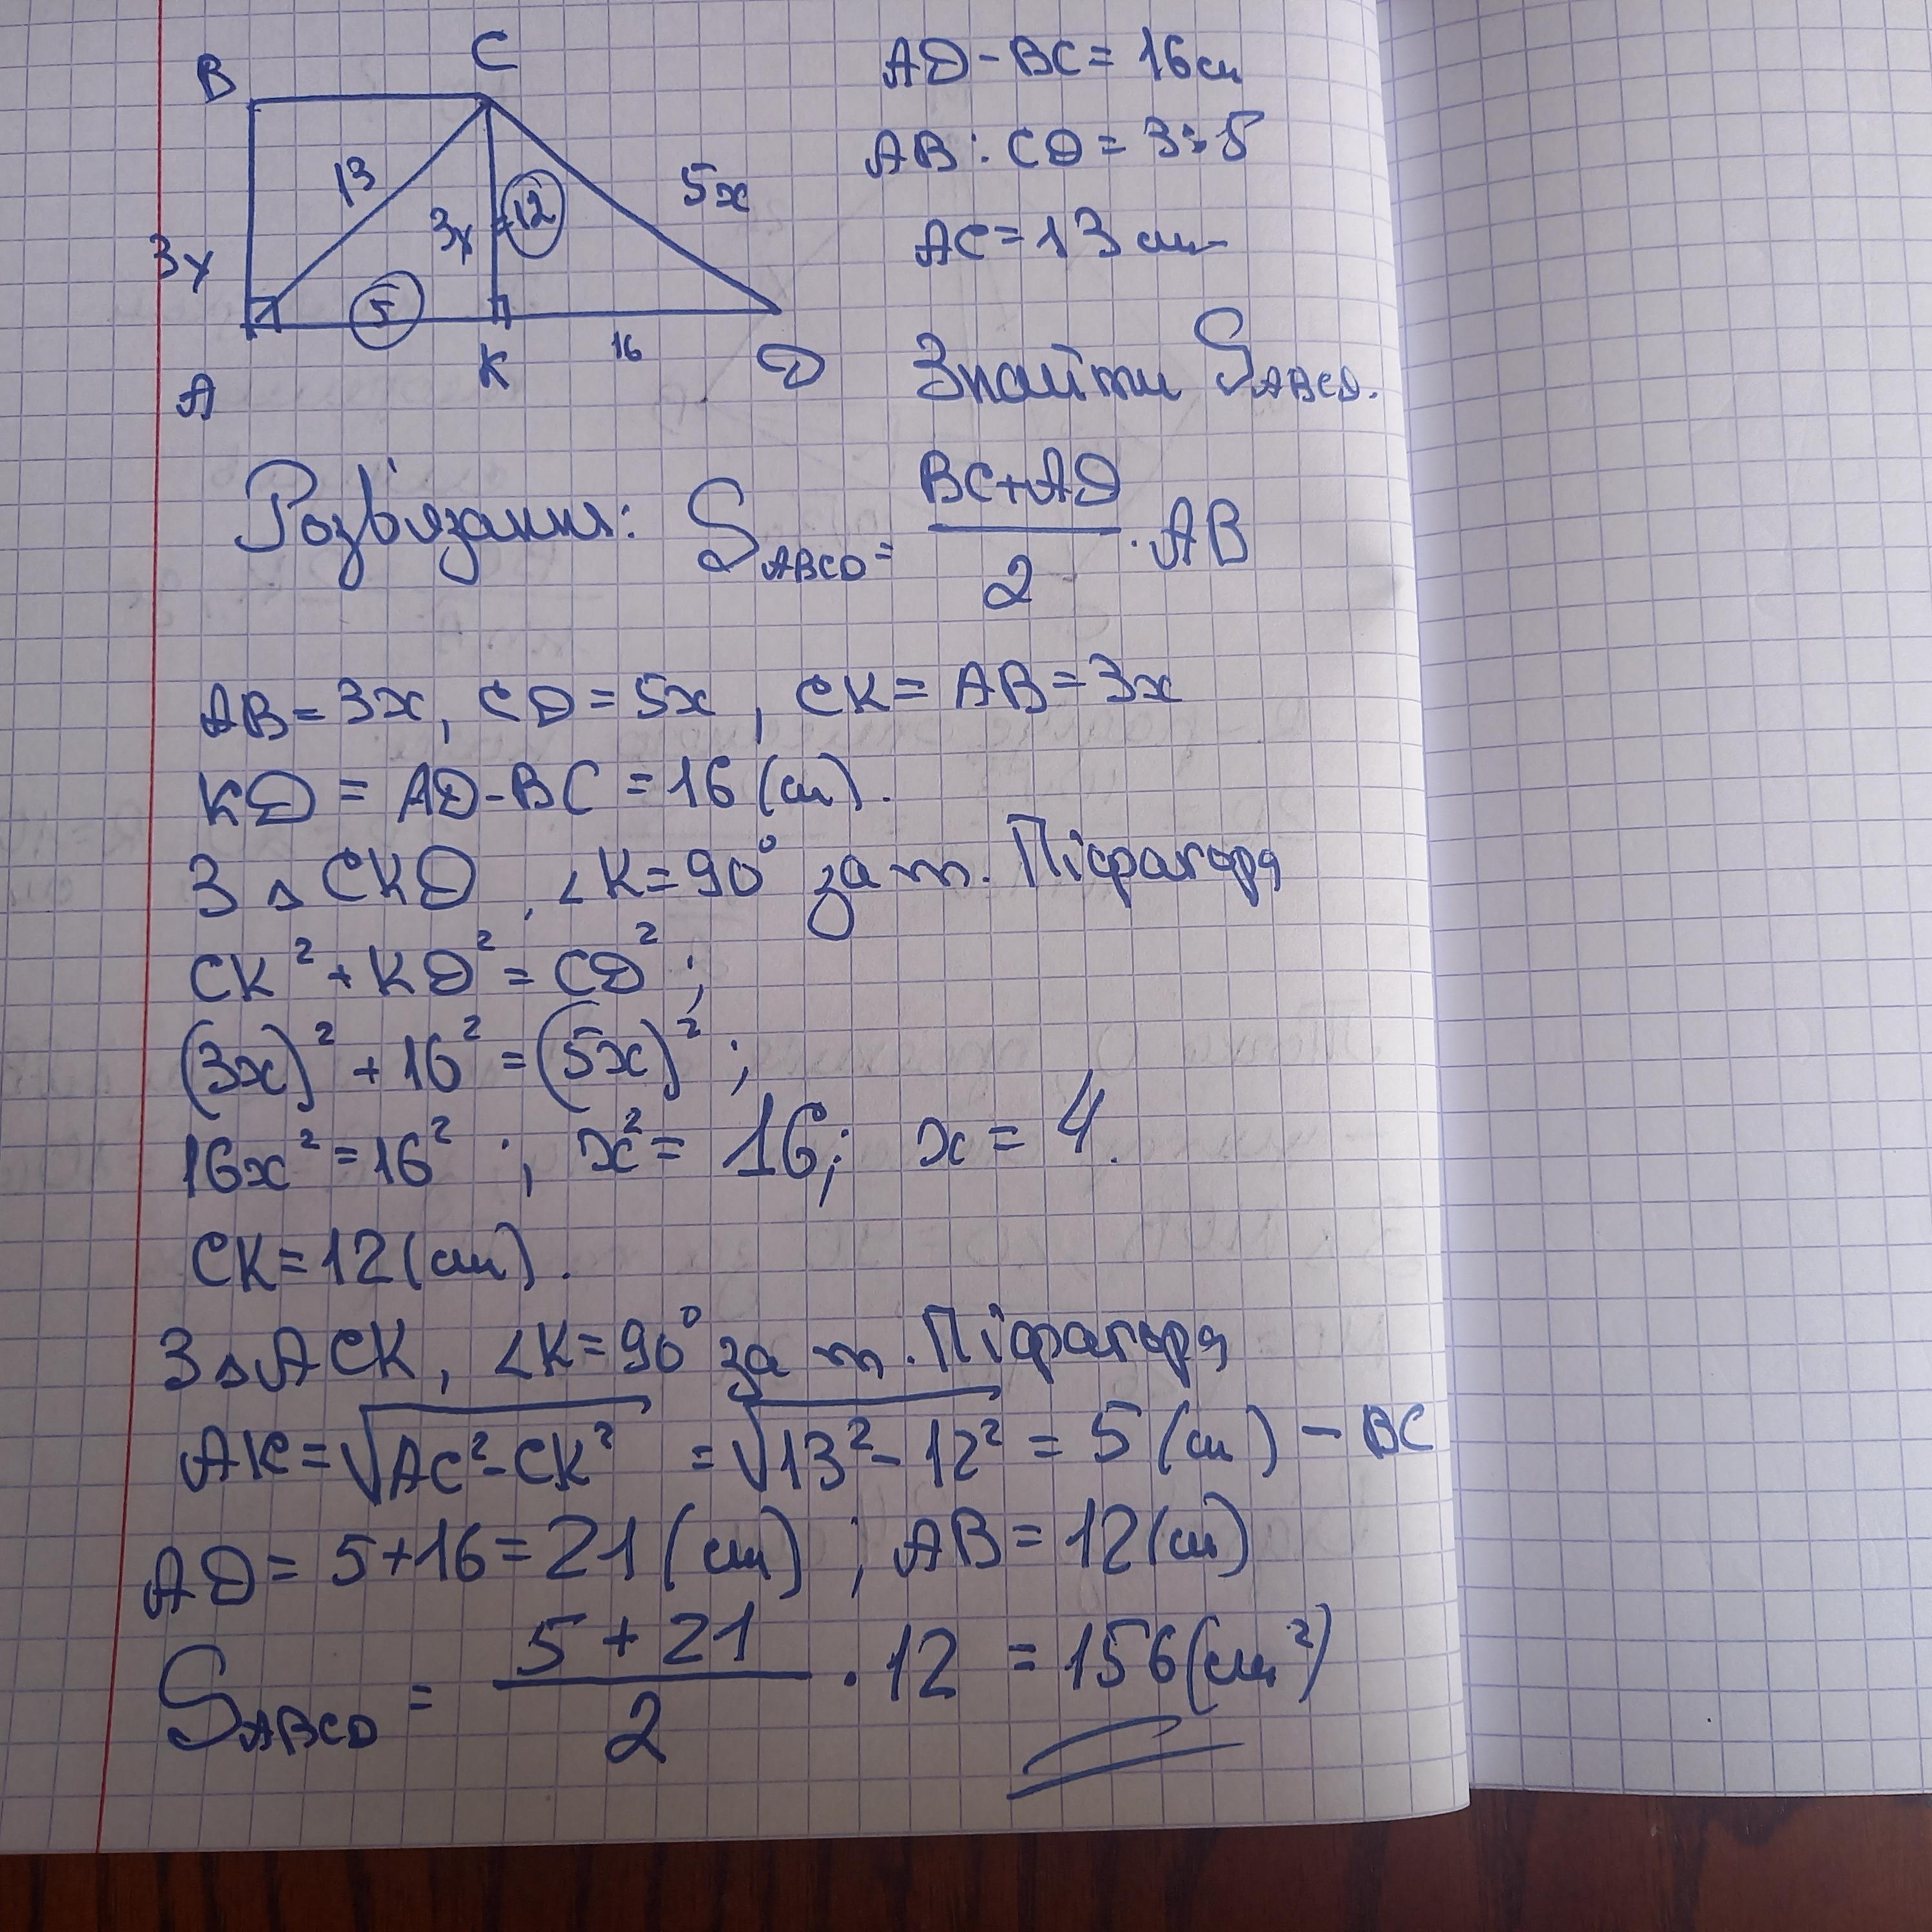 B C
13 3x 12 5x
3x
5 16
A K D
AD-BC=16см
AB:CD=3:5
AC=13 см
Знайти S_ABCD.
Розв'язання: S_ABCD = (BC+AD)/2 · AB
AB=3x, CD=5x, CK=AB=3x
KD = AD-BC=16(см).
З △CKD, ∠K=90° за т. Піфагора
CK²+KD²=CD²;
(3x)²+16²=(5x)²;
16x²=16²; x²=16; x=4.
CK=12(см).
З △ACK, ∠K=90° за т. Піфагора
AK=√AC²-CK² =√13²-12² = 5(см) - BC
AD=5+16=21(см); AB=12(см)
S_ABCD = (5+21)/2 · 12 = 156(см²)